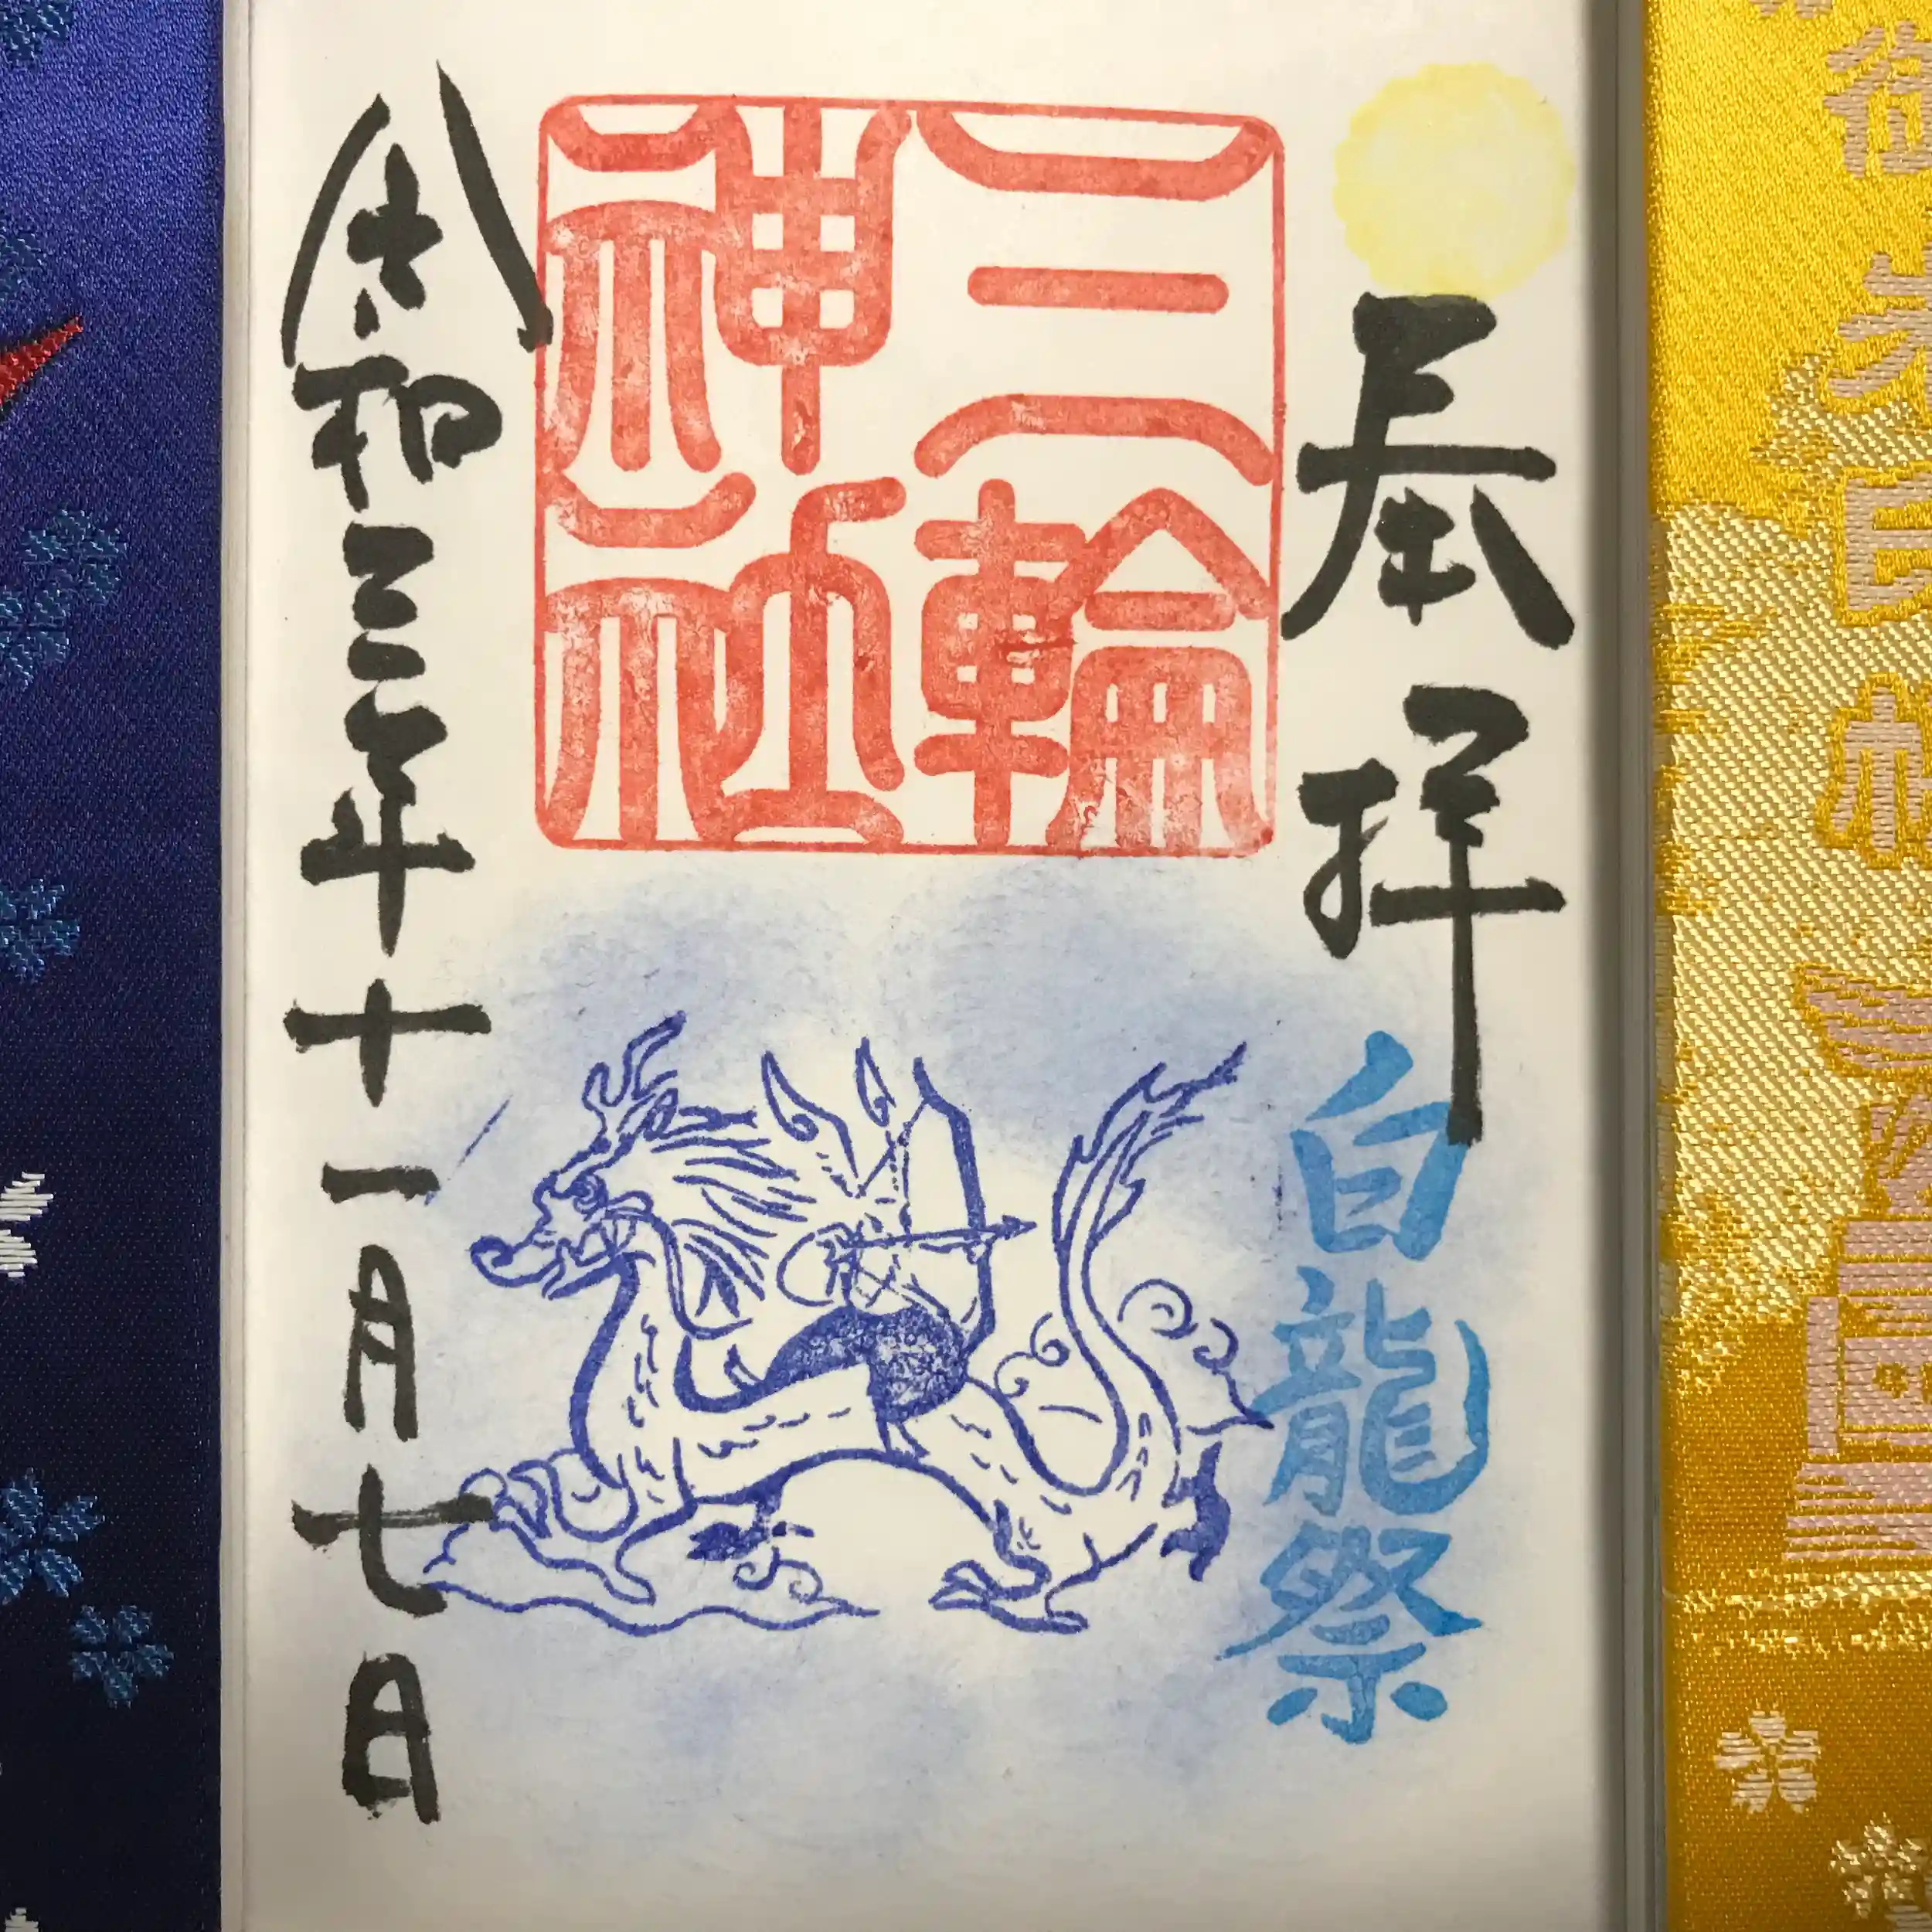 奉拝
白龍祭
三輪
神社
令和三年十一月七日